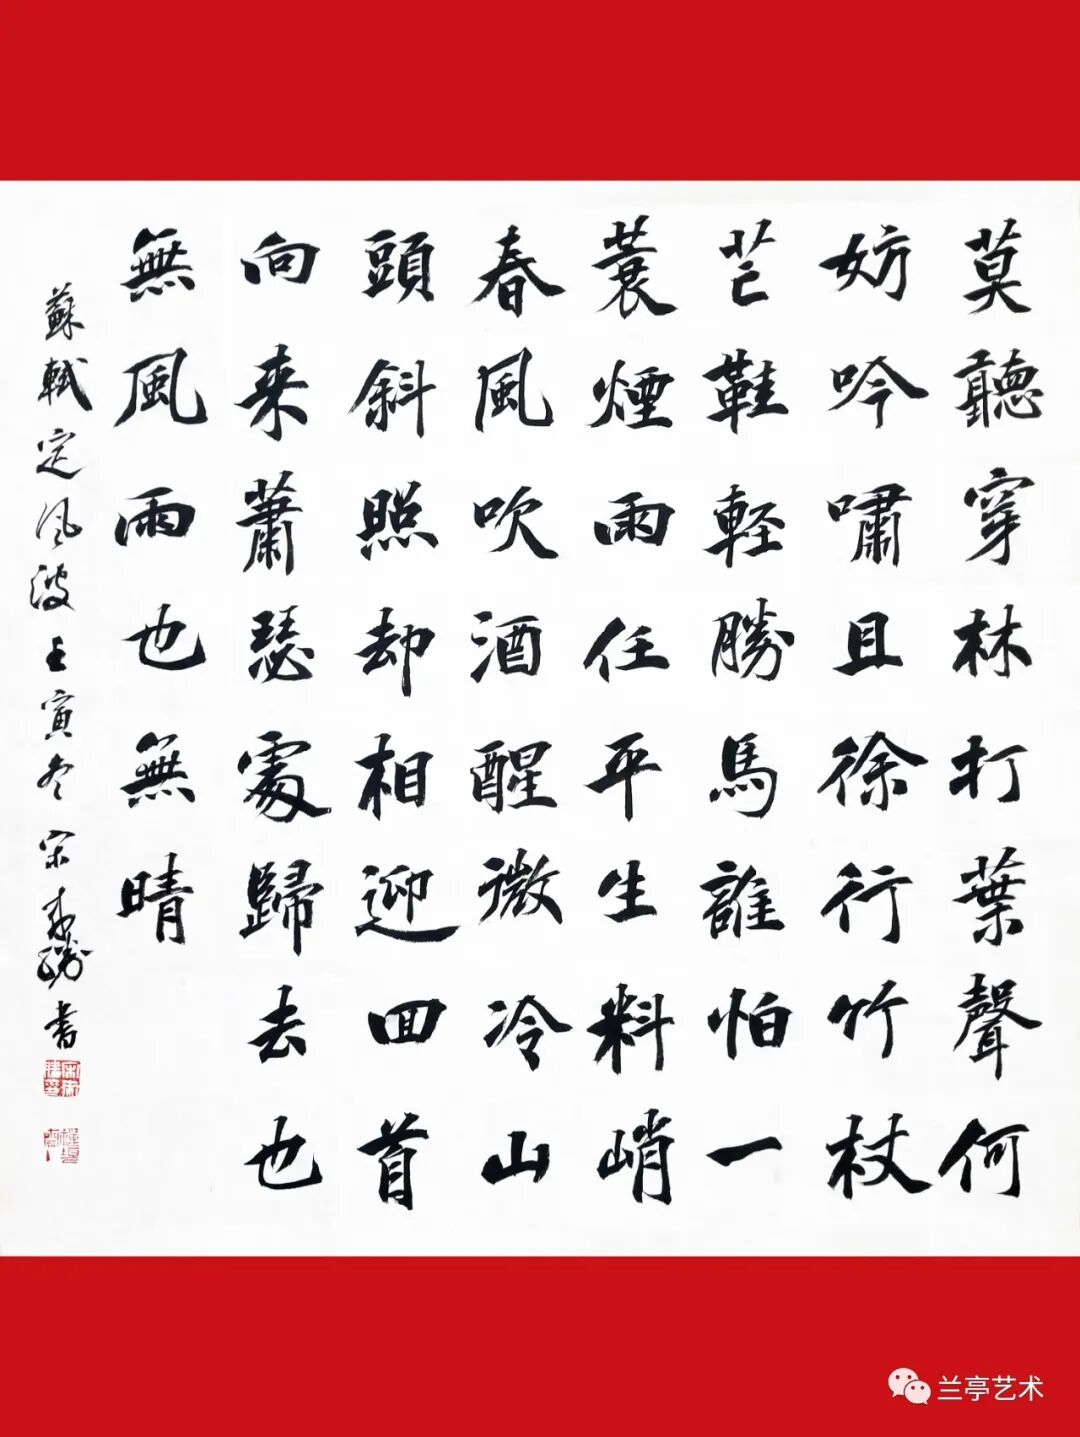 莫聽穿林打葉聲何
妨吟嘯且徐行竹杖
芒鞋軽勝馬誰怕一
蓑煙雨任平生料峭
春風吹酒醒微冷山
頭斜照却相迎回首
向来蕭瑟處歸去也
無風雨也無晴
蘇軾定风波壬寅冬宋書
兰亭艺术